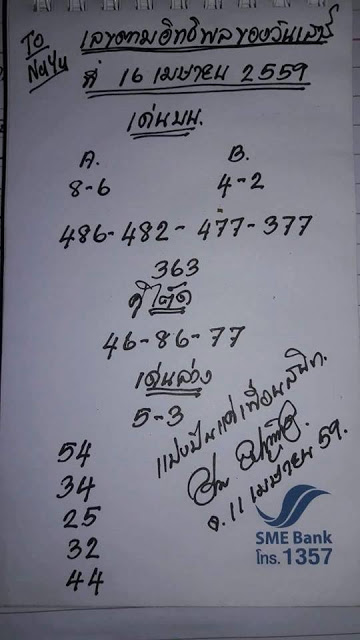 To
NaYu
เลขตามอิทธิพลของวันเสาร์
ที่ 16 เมษายน 2559
เด่นบน.
A. B.
8-6 4-2
486-482-477-377
363
คู่โต๊ด
46-86-77
เด่นล่าง
5-3
แบ่งปันแด่เพื่อนสนิท.
จ. 11 เมษายน 59.
54
34
25
32
44
SME Bank
โทร. 1357